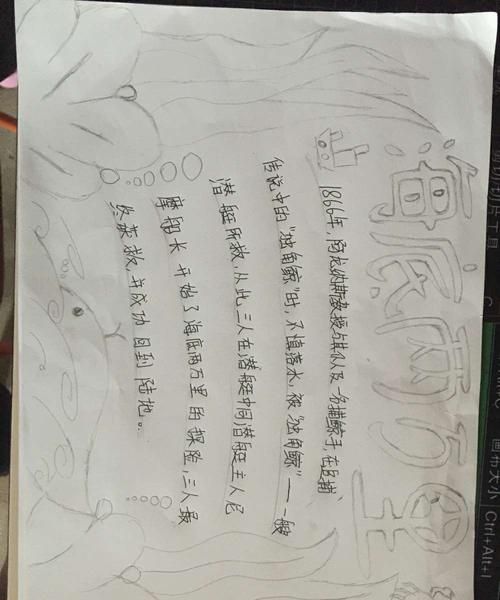 海底两万里
1866年,阿龙纳斯教授与其仆从及一名捕鲸手,在追捕
传说中的"独角鲸"时,不慎落水,被"独角鲸"——一艘
潜艇所救,从此三人在潜艇中同潜艇主人尼
摩船长 开始了海底两万里的探险,三人最
终获救,并成功回到陆地。
Ctrl+Alt+I